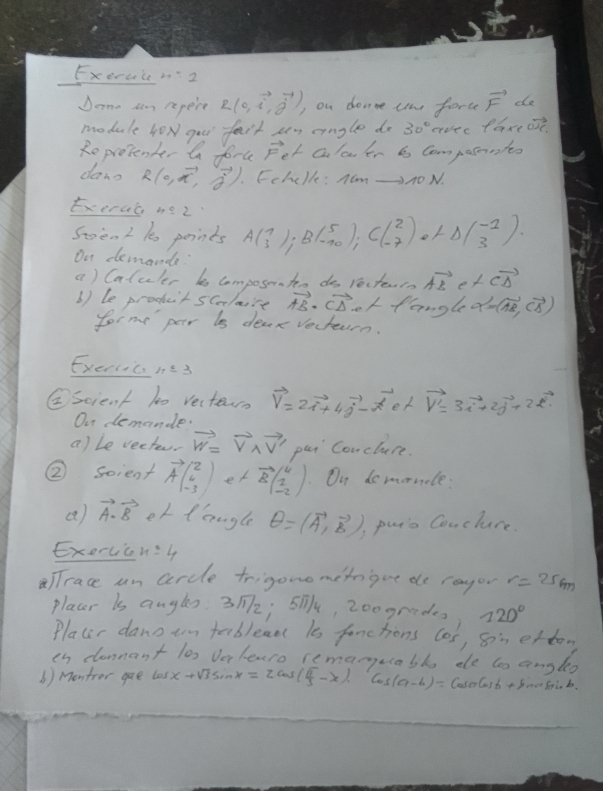 Exercice n° 1
Dans un repère R(o, i⃗, j⃗), on donne une force F⃗ de
module 40N qui fait un angle de 30° avec l'axe
Représenter la force F⃗ et calculer les composantes
dans R(o, j⃗). Echelle: 1cm → 10 N.
Exercice n° 2
Soient les points A(1 3); B(5 -10); C(2 -7) et D(-1 3).
On demande:
a) Calculer les composantes des vecteurs A⃗B⃗ et C⃗D⃗
b) Le produit scalaire A⃗B⃗ . C⃗D⃗ et l'angle α=(A⃗B⃗, C⃗D⃗)
formé par les deux vecteurs.
Exercice n° 3
① Soient les vecteurs V⃗ = 2i⃗+4j⃗-k⃗ et V⃗' = 3i⃗+2j⃗+2k⃗.
On demande:
a) Le vecteur W⃗ = V⃗ ∧ V⃗' puis Conclure.
② Soient A⃗(2 4 -3) et B⃗(4 1 -2). On demande:
a) A⃗.B⃗ et l'angle θ=(A⃗, B⃗), puis Conclure.
Exercice n° 4
a) Trace un cercle trigonométrique de rayon r = 25
Placer les angles: 3π/2; 5π/4, 200 grades, 120°
Placer dans un tableau les fonctions Cos, sin et tan
en donnant les valeurs remarquables de ces angles
b) Montrer que cosx + √3 sinx = 2cos(π/3 - x). Cos(a-b) = cosacosb + sinasinb.